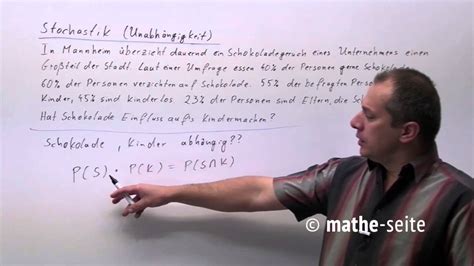 Stochastik (Unabhängigkeit)
In Mannheim überzieht dauernd ein Schokoladegeruch eines Unternehmens einen
Großteil der Stadt. Laut einer Umfrage essen 40% der Personen gerne Schokolade
60% der Personen verzichten auf Schokolade. 55% der befragten Person
Kinder, 45% sind kinderlos. 23% der Personen sind Eltern, die Sch
Hat Schokolade Einfluss aufs Kindermachen?
Schokolade, Kinder abhängig??
P(S) · P(K) = P(S∩K)
© mathe-seite